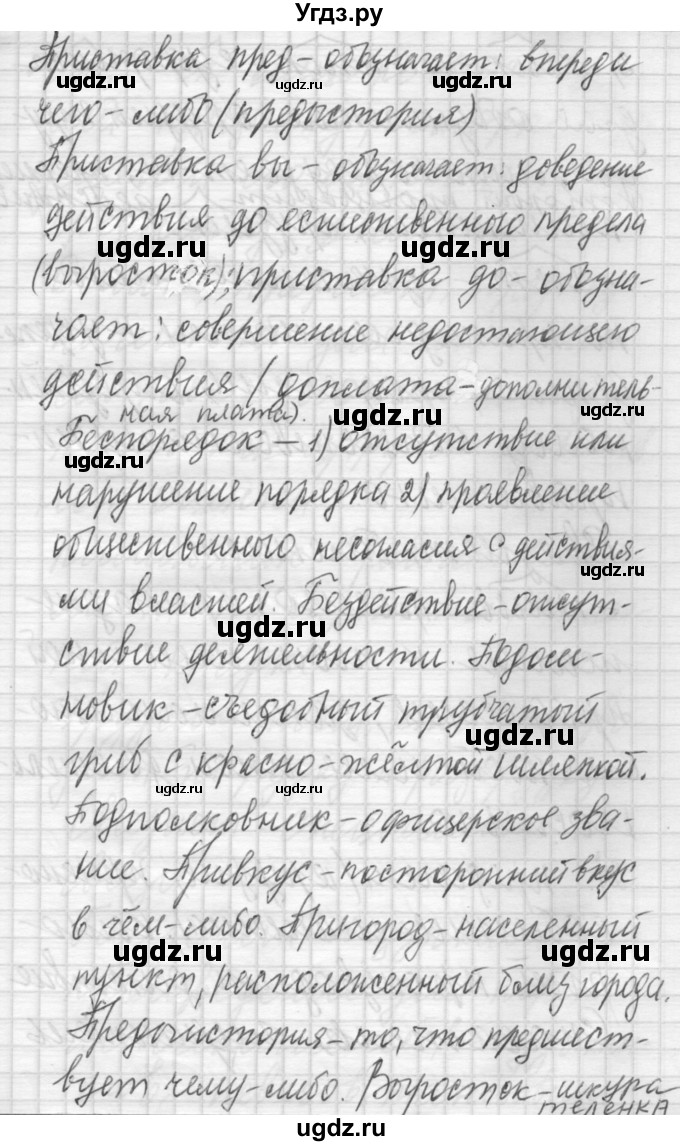 Угдз.ру
Приставка пред- обозначает: впереди
чего-либо (предыстория)
Приставка вы- обозначает: доведение
действия до естественного предела
(выросток); приставка до- обозна-
чает: совершение недостающего
действия (доплата-дополнитель-
ная плата).
Беспорядок - 1) отсутствие или
нарушение порядка 2) проявление
общественного несогласия с действия-
ми властей. Бездействие - отсут-
ствие деятельности. Подоси-
новик - съедобный трубчатый
гриб с красно-жёлтой шляпкой.
Подполковник - офицерское зва-
ние. Привкус - посторонний вкус
в чём-либо. Пригород - населенный
пункт, расположенный близ города.
Предыстория - то, что предшест-
вует чему-либо. Выросток - шкура
теленка